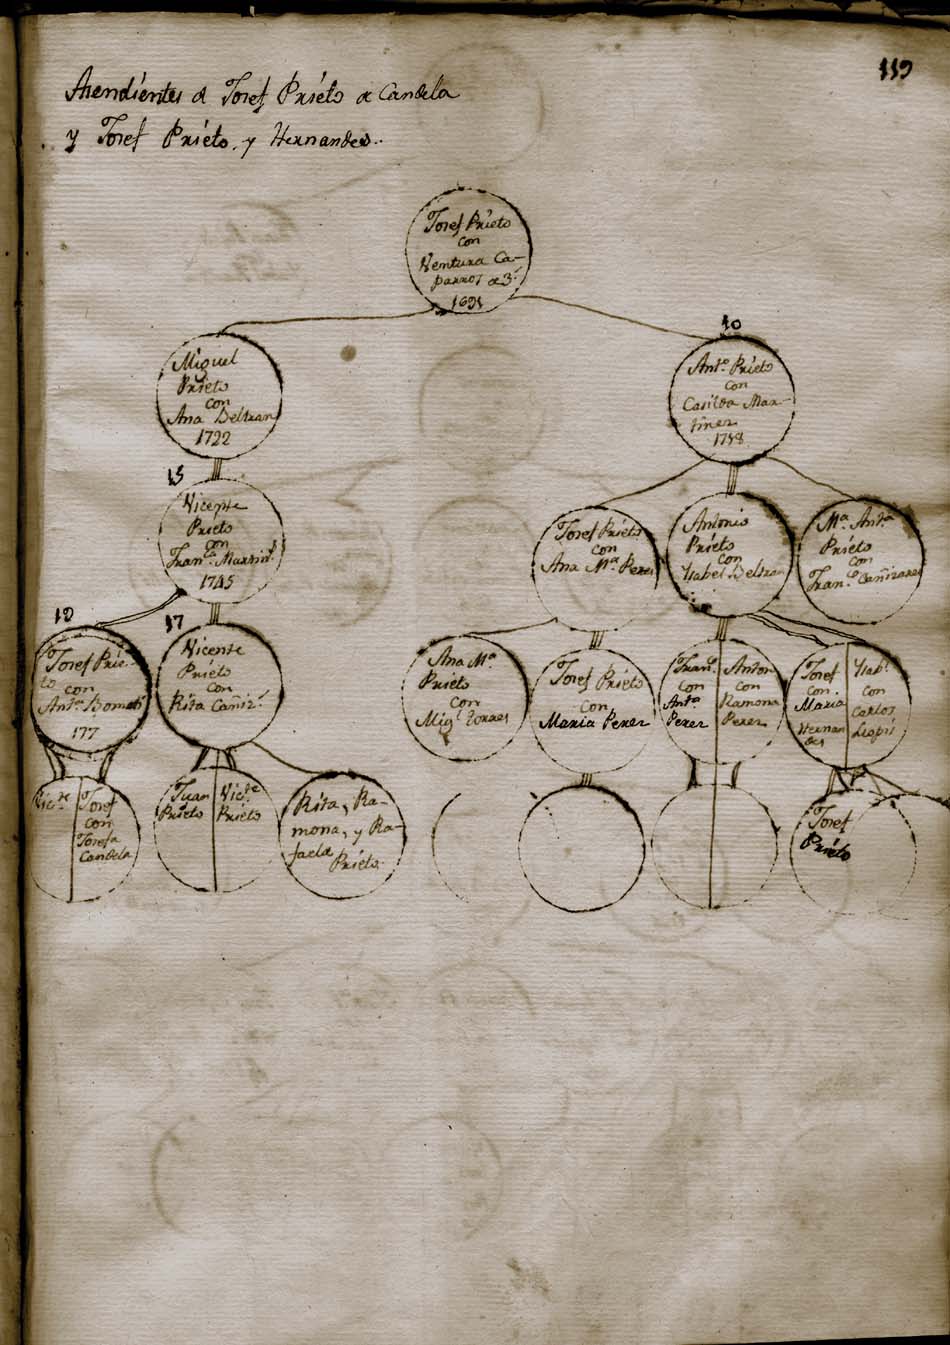 119
Asendientes d Josef Prieto de Candela
y Josef Prieto, y Hernandes..
Josef Prieto
con
Ventura Ca-
parros de 3º
1691
Miguel
Prieto
con
Ana Beltran
1722
10
Antº Prieto
con
Casilda Mar-
tinez
1758
15
Vicente
Prieto
con
Franca Martinz
1745
Josef Prieto
con
Ana Mª Perez
Antonio
Prieto
con
Ysabel Beltran
Mª Antª
Prieto
con
Franco Cañizares
Josef Prie-
to con
Antª
177
17
Vicente
Prieto
con
Rita Cañiz.
Ana Mª
Prieto
con
Migl Torres
Josef Prieto
con
Maria Perez
Franco
con
Antª
Perez
Anton
con
Ramona
Perez
Josef
con
Maria
Hernan
des
Ysabl
con
Carlos
Victe
Josef
con
Josefa
Candela
Juan
Prieto
Victe
Prieto
Rita, Ra-
mona, y Ra-
faela
Prieto
Josef
Prieto